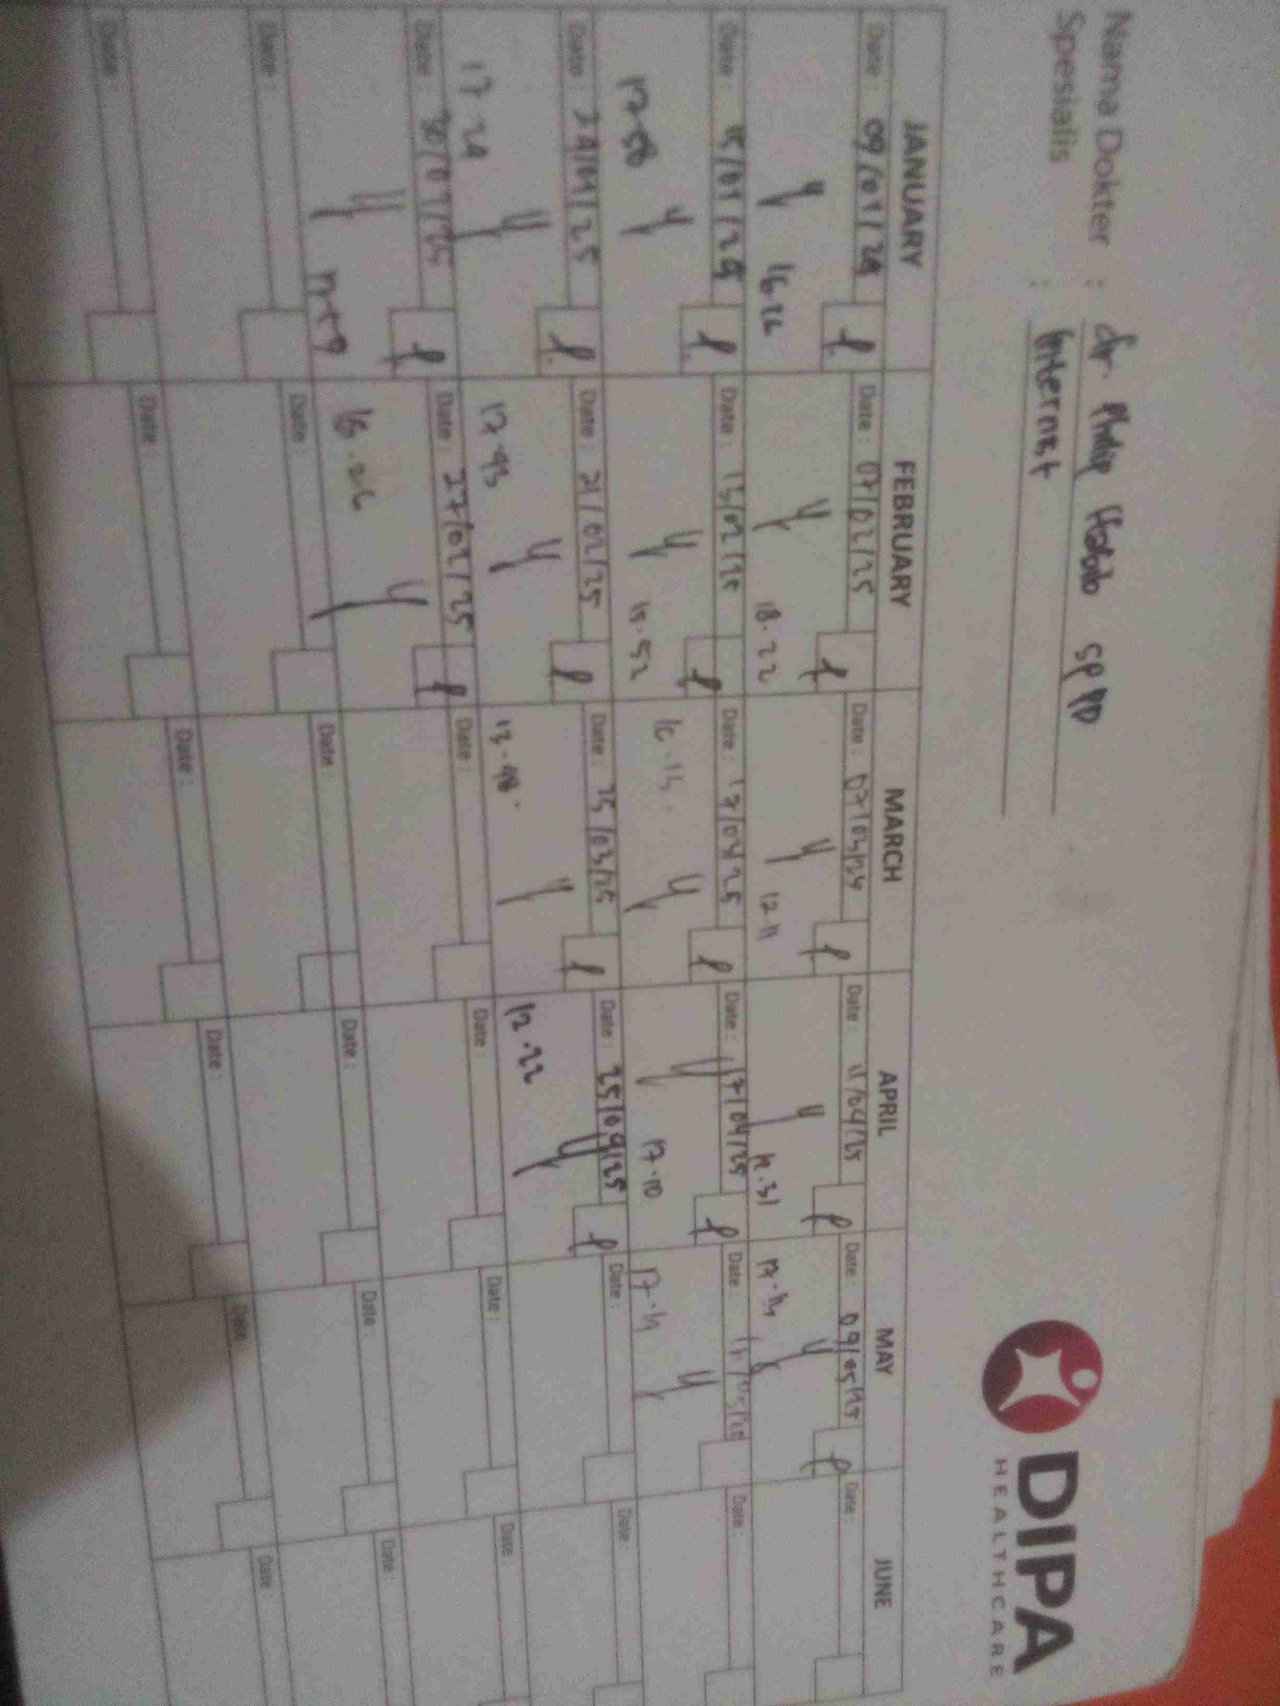 DIPA
HEALTHCARE
Nama Dokter : dr. Philip
Spesialis : Internist
JANUARY FEBRUARY MARCH APRIL MAY JUNE
Date : 09/01/24 Date : 07/02/25 Date : 07/03/24 Date : 11/04/25 Date : 09/05/25 Date :
16.26 18.22 12.11 12.31
Date : 15/01/25 Date : 13/02/25 Date : 17/04/25 Date : 17/04/25 Date : Date :
17.58 15.52 17.10
Date : 24/01/25 Date : 21/02/25 Date : 25/03/25 Date : 25/04/25 Date : Date :
17.24 17.43 13.48. 12.22
Date : 30/01/25 Date : 27/02/25 Date : Date : Date : Date :
16.26
Date : Date : Date : Date : Date : Date :
Date : Date : Date : Date : Date : Date :